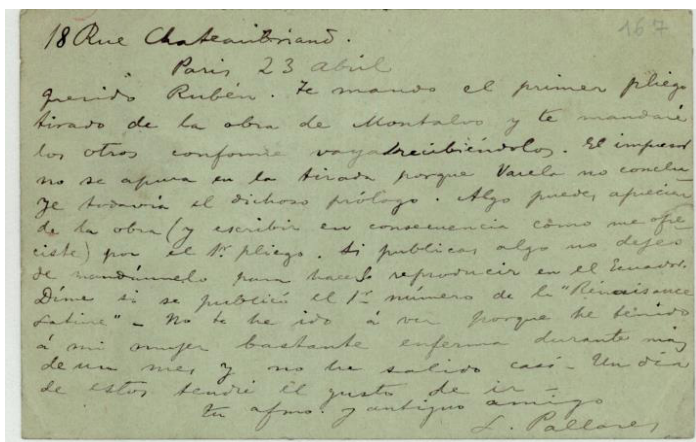 167
18 Rue Chateaubriand.
Paris 23 Abril
Querido Rubén. Te mando el primer pliego
tirado de la obra de Montalvo y te mandaré
los otros conforme vaya recibiéndolos. El impresor
no se apura en la tirada porque Varela no conclu-
ye todavía el dichoso prólogo. Algo puedes apreciar
de la obra (y escribir en consecuencia cómo me ofre-
ciste) por el 1r. pliego. Si publicas algo no dejes
de mandármelo para hacerlo reproducir en el Ecuador.
Díme si se publicó el 1er número de la "Rénaissance
Latine" - No te he ido á ver porque he tenido
á mi mujer bastante enferma durante más
de un mes, y no ha salido casi - Un día
de estos tendré el gusto de ir -
tu afmo. y antiguo amigo
L. Pallares